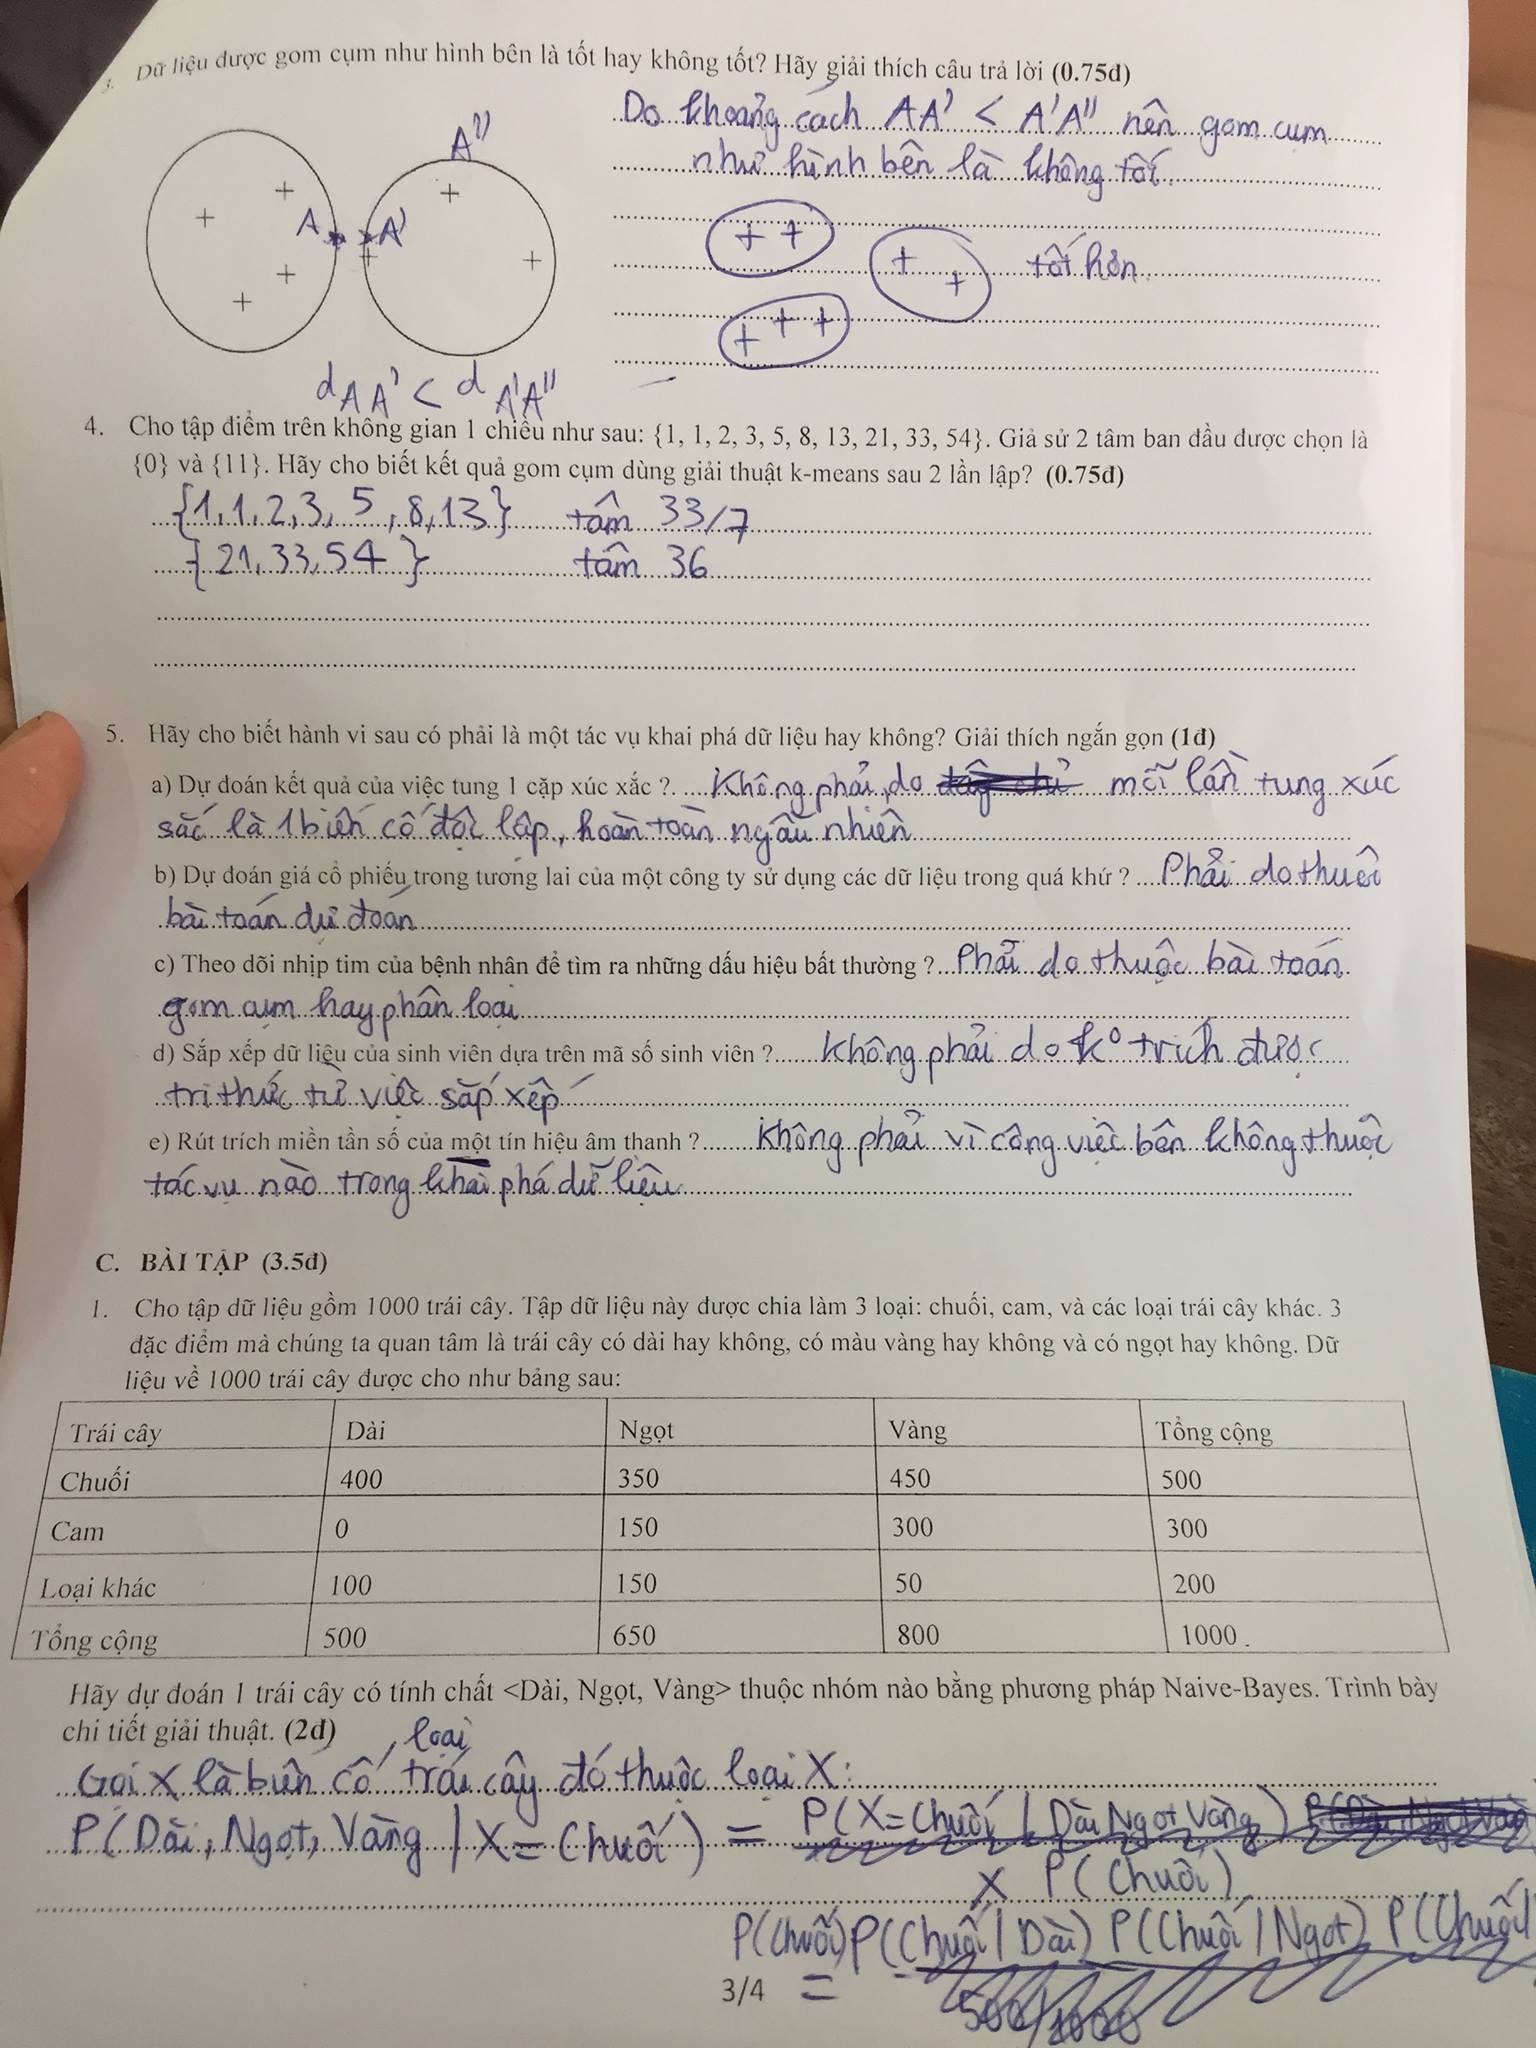 3. Dữ liệu được gom cụm như hình bên là tốt hay không tốt? Hãy giải thích câu trả lời (0.75đ)
Do khoảng cách AA' < A'A'' nên gom cụm
như hình bên là không tốt.
A''
A A'
tốt hơn
d AA' < d A'A''
4. Cho tập điểm trên không gian 1 chiều như sau: {1, 1, 2, 3, 5, 8, 13, 21, 33, 54}. Giả sử 2 tâm ban đầu được chọn là
{0} và {11}. Hãy cho biết kết quả gom cụm dùng giải thuật k-means sau 2 lần lặp? (0.75đ)
{1, 1, 2, 3, 5, 8, 13} tâm 33/7
{21, 33, 54} tâm 36
5. Hãy cho biết hành vi sau có phải là một tác vụ khai phá dữ liệu hay không? Giải thích ngắn gọn (1đ)
a) Dự đoán kết quả của việc tung 1 cặp xúc xắc ? Không phải, do mỗi lần tung xúc
sắc là 1 biến cố độc lập, hoàn toàn ngẫu nhiên
b) Dự đoán giá cổ phiếu trong tương lai của một công ty sử dụng các dữ liệu trong quá khứ ? Phải do thuộc
bài toán dự đoán
c) Theo dõi nhịp tim của bệnh nhân để tìm ra những dấu hiệu bất thường ? Phải do thuộc bài toán
gom cụm hay phân loại
d) Sắp xếp dữ liệu của sinh viên dựa trên mã số sinh viên ? Không phải do k° trích được
tri thức từ việc sắp xếp
e) Rút trích miền tần số của một tín hiệu âm thanh ? Không phải vì công việc bên không thuộc
tác vụ nào trong khai phá dữ liệu
C. BÀI TẬP (3.5đ)
1. Cho tập dữ liệu gồm 1000 trái cây. Tập dữ liệu này được chia làm 3 loại: chuối, cam, và các loại trái cây khác. 3
đặc điểm mà chúng ta quan tâm là trái cây có dài hay không, có màu vàng hay không và có ngọt hay không. Dữ
liệu về 1000 trái cây được cho như bảng sau:
Trái cây Dài Ngọt Vàng Tổng cộng
Chuối 400 350 450 500
Cam 0 150 300 300
Loại khác 100 150 50 200
Tổng cộng 500 650 800 1000
Hãy dự đoán 1 trái cây có tính chất <Dài, Ngọt, Vàng> thuộc nhóm nào bằng phương pháp Naive-Bayes. Trình bày
chi tiết giải thuật. (2đ)
loại
Gọi X là biến cố trái cây đó thuộc loại X:
P(Dài, Ngọt, Vàng | X = Chuối) = P(X = Chuối | Dài Ngọt Vàng)
x P(Chuối)
P(Chuối) P(Chuối | Dài) P(Chuối | Ngọt) P(Chuối |
=
500/1000
3/4